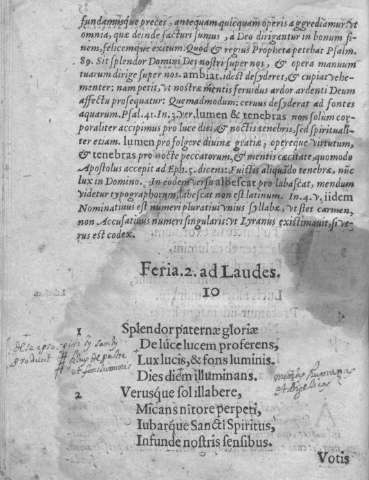 fundamusque preces, antequam quicquam operis aggrediamur: vt
omnia, quæ deinde facturi sumus, à Deo dirigantur in bonum fi-
nem, felicemque exitum. Quod & regius Propheta petebat Psalm.
89. Sit splendor Domini Dei nostri super nos, & opera manuum
tuarum dirige super nos. ambiat. idest desyderet, & cupiat vehe-
menter: nam petit, vt nostræ mentis feruidus ardor ardenti Deum
affectu prosequatur: Quemadmodum: ceruus desyderat ad fontes
aquarum. Psal. 41. In. 3. ver. lumen & tenebras non solum cor-
poraliter accipimus pro luce diei, & noctis tenebris, sed spirituali-
ter etiam. lumen pro fulgore diuinæ gratiæ, opereque virtutum,
& tenebras pro nocte peccatorum, & mentis cæcitate, quomodo
Apostolus accepit ad Eph. 5. dicens: Fuistis aliquãdo tenebræ, nũc
lux in Domino. In eodem versu albescat pro labascat, mendum
videtur typographorum, labescat non est latinum. In. 4. v. iidem
Nominatiuus est numeri pluratiui vnius syllabæ, vt stet carmen,
non Accusatiuus numeri singularis: vt Lyranus existimauit, si ve-
rus est codex.
Feria. 2. ad Laudes.
10
1 Splendor paternæ gloriæ
De lúce lucem proferens,
Lux lucis, & fons luminis.
Dies diém illuminans.
2 Verusque sol illabere,
Micans nitore perpeti,
Iubarque Sancti Spiritus,
Infunde nostris sensibus.
Votis